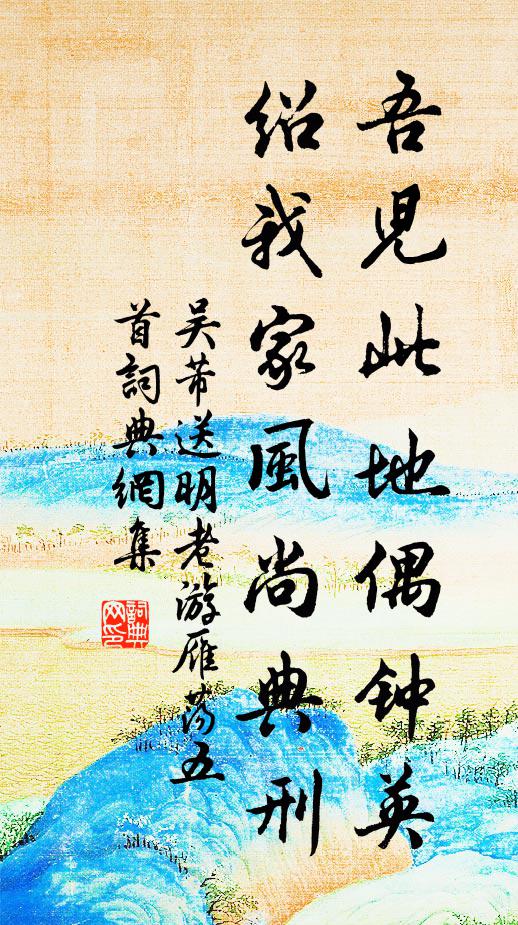 吾児此地偶钟英
绍我家風尚典刑
吴芾送明老游雁荡五
首詞典網集
詞典
网印